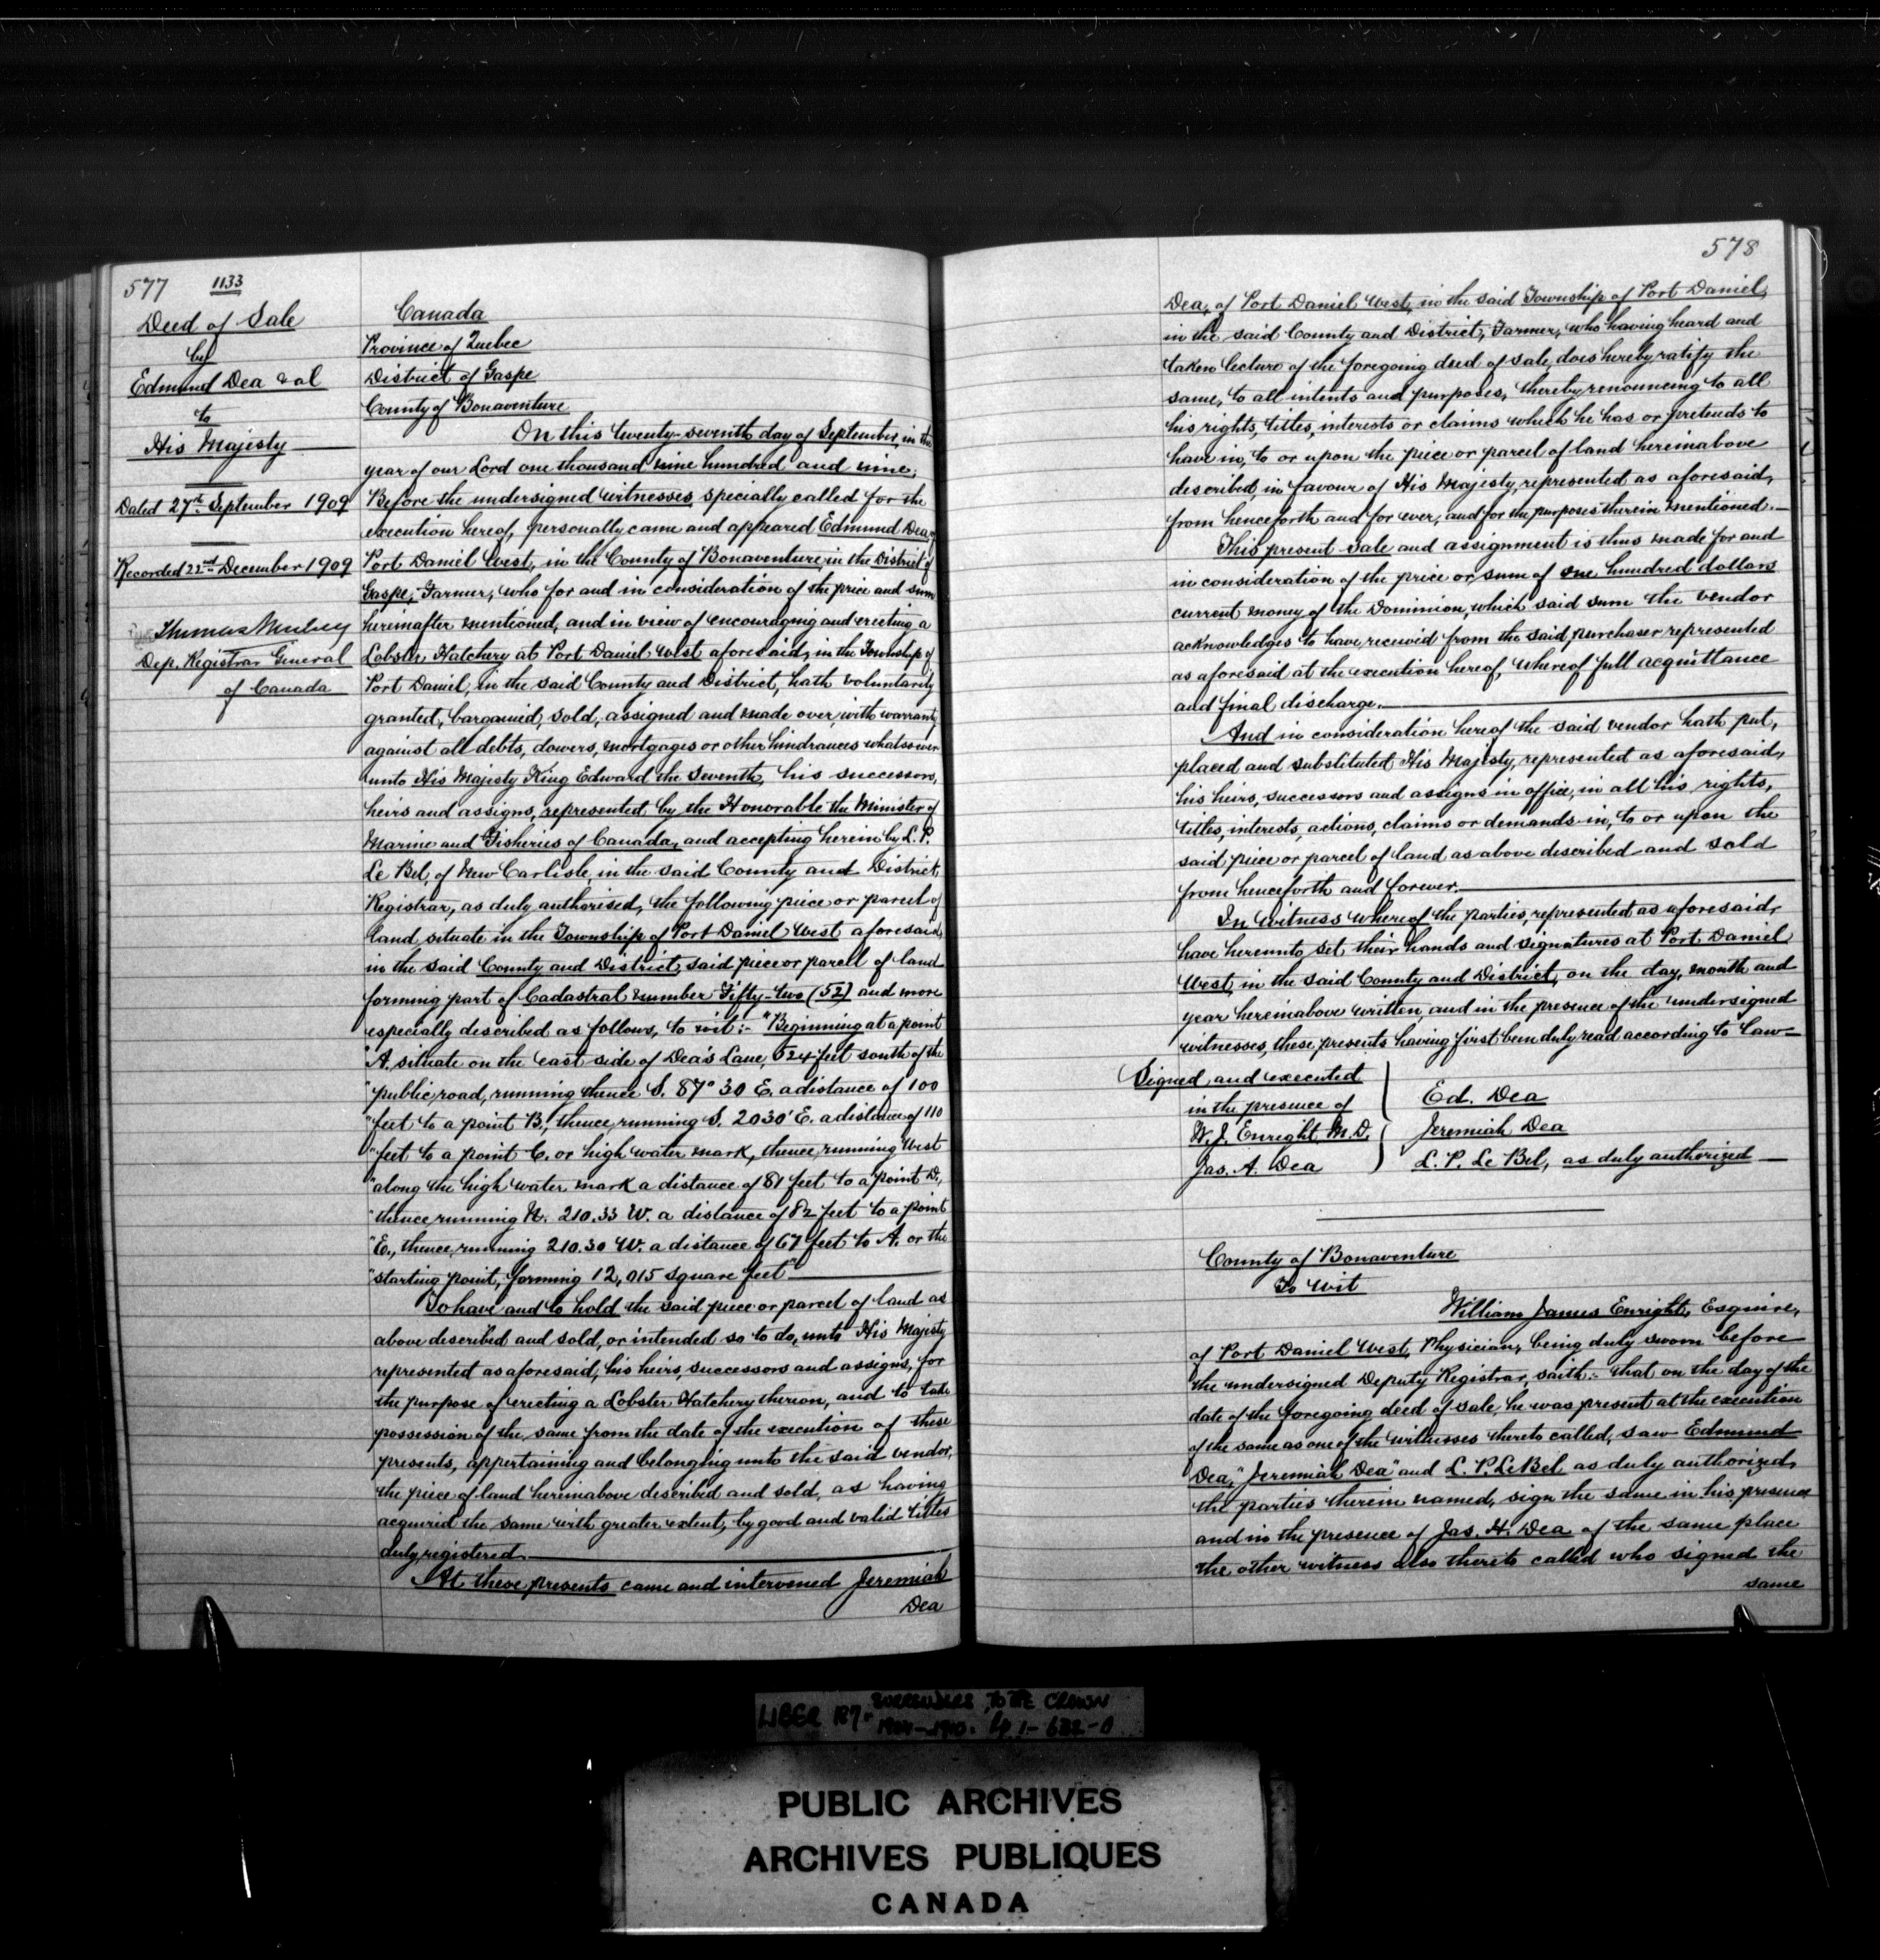 577 1133
Deed of Sale
by
Edmund Dea & al
to
His Majesty
Dated 27th September 1909
Recorded 22nd December 1909
Thomas Mulvey
Dep. Registrar General
of Canada
Canada
Province of Quebec
District of Gaspe
County of Bonaventure
On this twenty-seventh day of September, in the
year of our Lord one thousand nine hundred and nine;
Before the undersigned witnesses specially called for the
execution hereof, personally came and appeared Edmund Dea, of
Port Daniel West, in the County of Bonaventure, in the District of
Gaspe, Farmer, who for and in consideration of the price and sum
hereinafter mentioned, and in view of encouraging and erecting a
Lobster Hatchery at Port Daniel West aforesaid, in the Township of
Port Daniel, in the said County and District, hath voluntarily
granted, bargained, sold, assigned and made over, with warranty
against all debts, dowers, mortgages or other hindrances whatsoever
unto His Majesty King Edward the Seventh, his successors,
heirs and assigns, represented by the Honorable the Minister of
Marine and Fisheries of Canada, and accepting herein by L. P.
Le Bel, of New Carlisle, in the said County and District,
Registrar, as duly authorised, the following piece or parcel of
land, situate in the Township of Port Daniel West aforesaid,
in the said County and District, said piece or parcel of land
forming part of Cadastral number Fifty-two (52) and more
especially described as follows, to wit:- "Beginning at a point
"A. situate on the east side of Dea's Lane, 524 feet south of the
"public road, running thence S. 87° 30 E. a distance of 100
"feet to a point B., thence running S. 2030' E. a distance of 110
"feet to a point C. or high water mark, thence running West
"along the high water mark a distance of 81 feet to a point D.,
"thence running N. 210.33 W. a distance of 82 feet to a point
"E., thence running 210.30 W. a distance of 67 feet to A. or the
"starting point, forming 12,015 square feet"
To have and to hold the said piece or parcel of land as
above described and sold, or intended so to do, unto His Majesty
represented as aforesaid, his heirs, successors and assigns, for
the purpose of erecting a Lobster Hatchery thereon, and to take
possession of the same from the date of the execution of these
presents, appertaining and belonging unto the said vendor,
the piece of land hereinabove described and sold, as having
acquired the same with greater extent, by good and valid titles
duly registered.
At these presents came and intervened Jeremiah
Dea
578
Dea, of Port Daniel West, in the said Township of Port Daniel,
in the said County and District, Farmer, who having heard and
taken lecture of the foregoing deed of sale, does hereby ratify the
same, to all intents and purposes, thereby renouncing to all
his rights, titles, interests or claims which he has or pretends to
have in, to or upon the piece or parcel of land hereinabove
described, in favour of His Majesty, represented as aforesaid,
from henceforth and for ever, and for the purposes therein mentioned.
This present sale and assignment is thus made for and
in consideration of the price or sum of one hundred dollars
current money of the Dominion, which said sum the vendor
acknowledges to have received from the said purchaser represented
as aforesaid at the execution hereof, whereof full acquittance
and final discharge.
And in consideration hereof the said vendor hath put,
placed and substituted His Majesty, represented as aforesaid,
his heirs, successors and assigns in office, in all his rights,
titles, interests, actions, claims or demands in, to or upon the
said piece or parcel of land as above described and sold
from henceforth and forever.
In Witness whereof the parties, represented as aforesaid,
have hereunto set their hands and signatures at Port Daniel
West, in the said County and District, on the day, month and
year hereinabove written, and in the presence of the undersigned
witnesses, these presents having first been duly read according to law
Signed and executed
in the presence of
W. J. Enright M.D.
Jas. A. Dea
Ed. Dea
Jeremiah Dea
L. P. Le Bel, as duly authorized
County of Bonaventure
To Wit
William James Enright, Esquire,
of Port Daniel West, Physician, being duly sworn before
the undersigned Deputy Registrar, saith:- that on the day of the
date of the foregoing deed of sale, he was present at the execution
of the same as one of the witnesses thereto called, saw Edmund
Dea," Jeremiah Dea" and L. P. LeBel as duly authorized,
the parties therein named, sign the same in his presence
and in the presence of Jas. H. Dea of the same place
the other witness also thereto called who signed the
same
LIBER 127. SURRENDERS TO THE CROWN
1904-1910. Pp. 1-632-0
PUBLIC ARCHIVES
ARCHIVES PUBLIQUES
CANADA